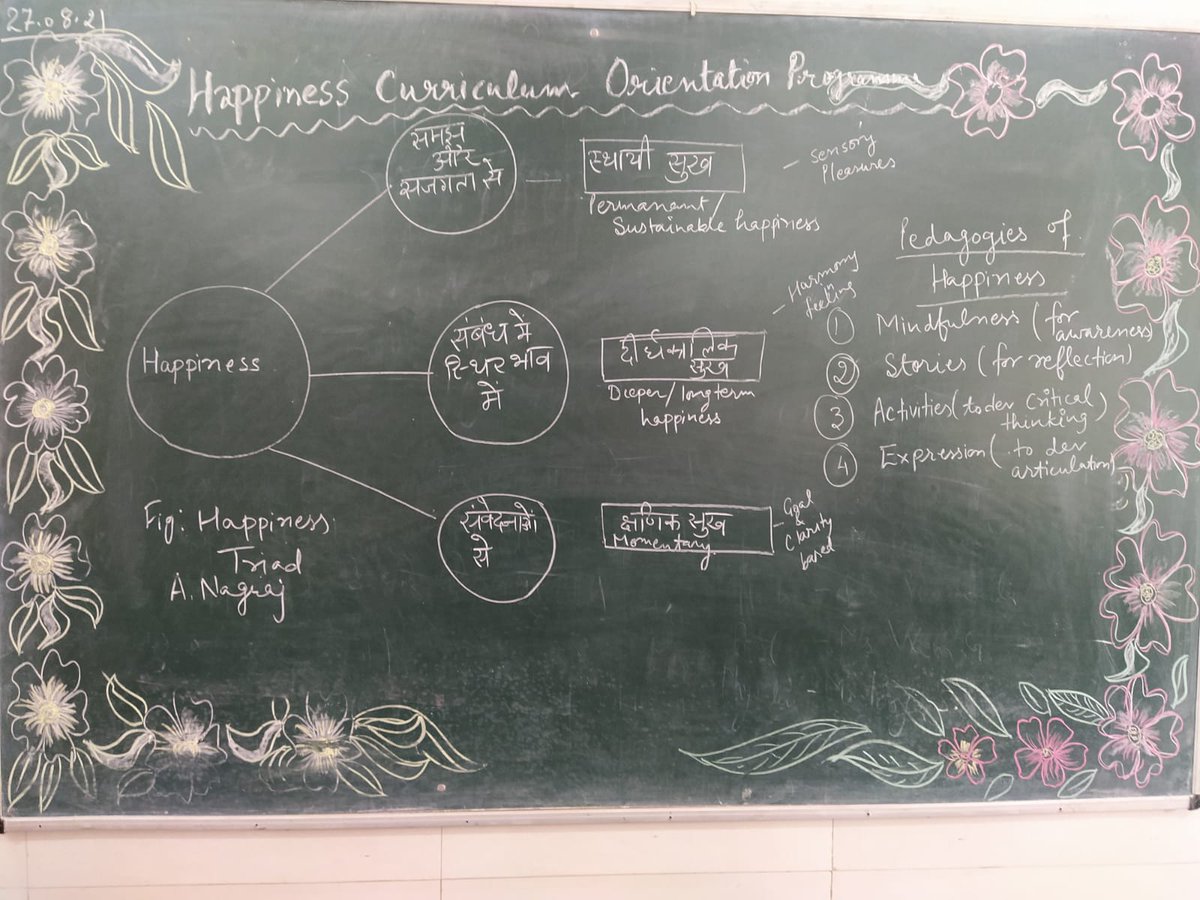 27.08.21
Happiness Curriculum Orientation Programme
समझ
और
सजगता से
स्थायी सुख
Permanamt/
Sustainable happiness
- Sensory
Pleasures
Happiness
संबंध में
स्थिर भाव
में
दीर्घकालिक
सुख
Deeper/longterm
happiness
- Harmony
in
feeling
संवेदनाओं
से
क्षणिक सुख
Momentary
- Goal
&
Clarity
based
Fig: Happiness
Triad
A. Nagraj
Pedagogies of
Happiness
1 Mindfulness (for
awareness)
2 Stories (for reflection)
3 Activities (to dev critical
thinking)
4 Expression (to dev
articulation)